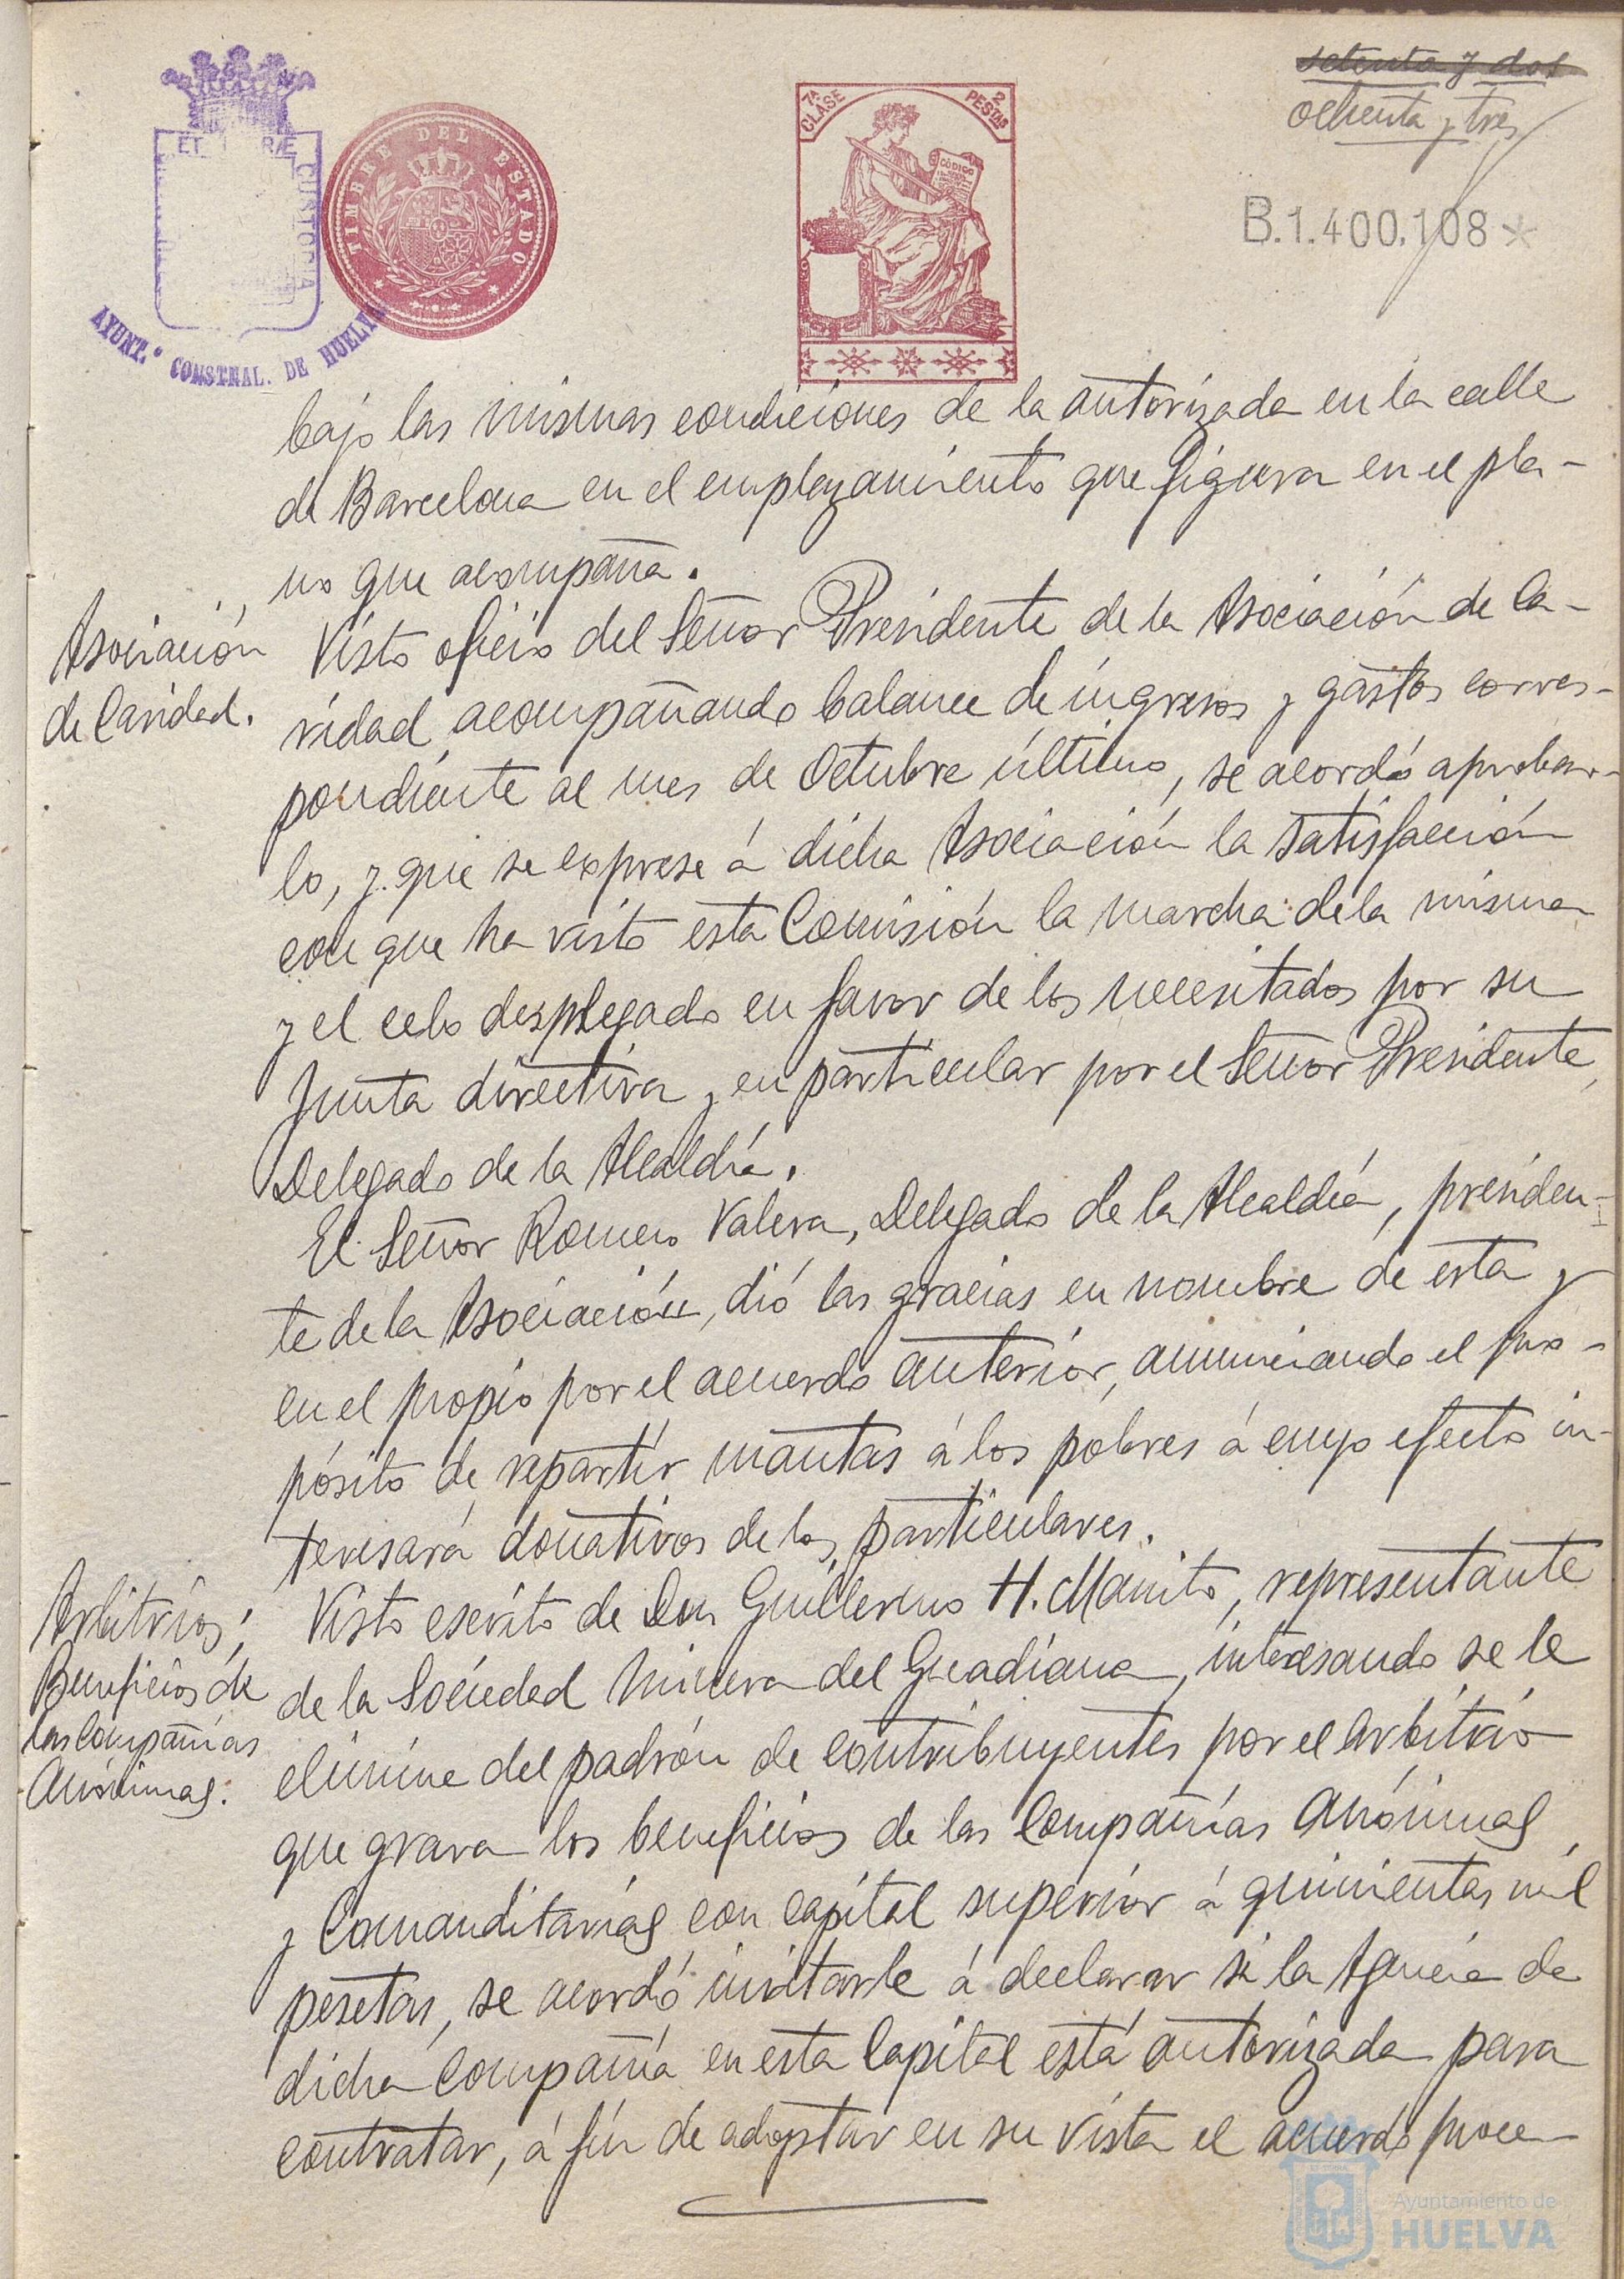 setenta y dos
ochenta y tres
B.1.400.108*
TIMBRE DEL ESTADO
7ª CLASE
2 PESTAS
CÓDIGO
CUSTODIA
AYUNT.º CONSTNAL. DE HUELVA
bajo las mismas condiciones de la autorizada en la calle
de Barcelona en el emplazamiento que figura en el pla-
no que acompaña.
Asociación
de Caridad.
Visto oficio del Señor Presidente de la Asociación de Ca-
ridad, acompañando balance de ingresos y gastos corres-
pondiente al mes de Octubre último, se acordó aprobar-
lo, y que se exprese á dicha Asociación la satisfacción
con que ha visto esta Comisión la marcha de la misma
y el celo desplegado en favor de los necesitados por su
Junta directiva y en particular por el Señor Presidente,
Delegado de la Alcaldía.
El Señor Romero Valera, Delegado de la Alcaldía, presiden-
te de la Asociación, dió las gracias en nombre de esta y
en el propio por el acuerdo anterior, anunciando el pro-
pósito de repartir mantas á los pobres á cuyo efecto in-
teresará donativos de los particulares.
Arbitrios;
Beneficios de
las Compañías
Anónimas.
Visto escrito de Don Guillermo H. Manito, representante
de la Sociedad Minera del Guadiana, interesando se le
elimine del padrón de contribuyentes por el arbitrio
que grava los beneficios de las Compañías Anónimas
y Comanditarias con capital superior á quinientas mil
pesetas, se acordó invitarle á declarar si la Agencia de
dicha Compañía en esta Capital está autorizada para
contratar, á fin de adoptar en su vista el acuerdo proce-
Ayuntamiento de
HUELVA